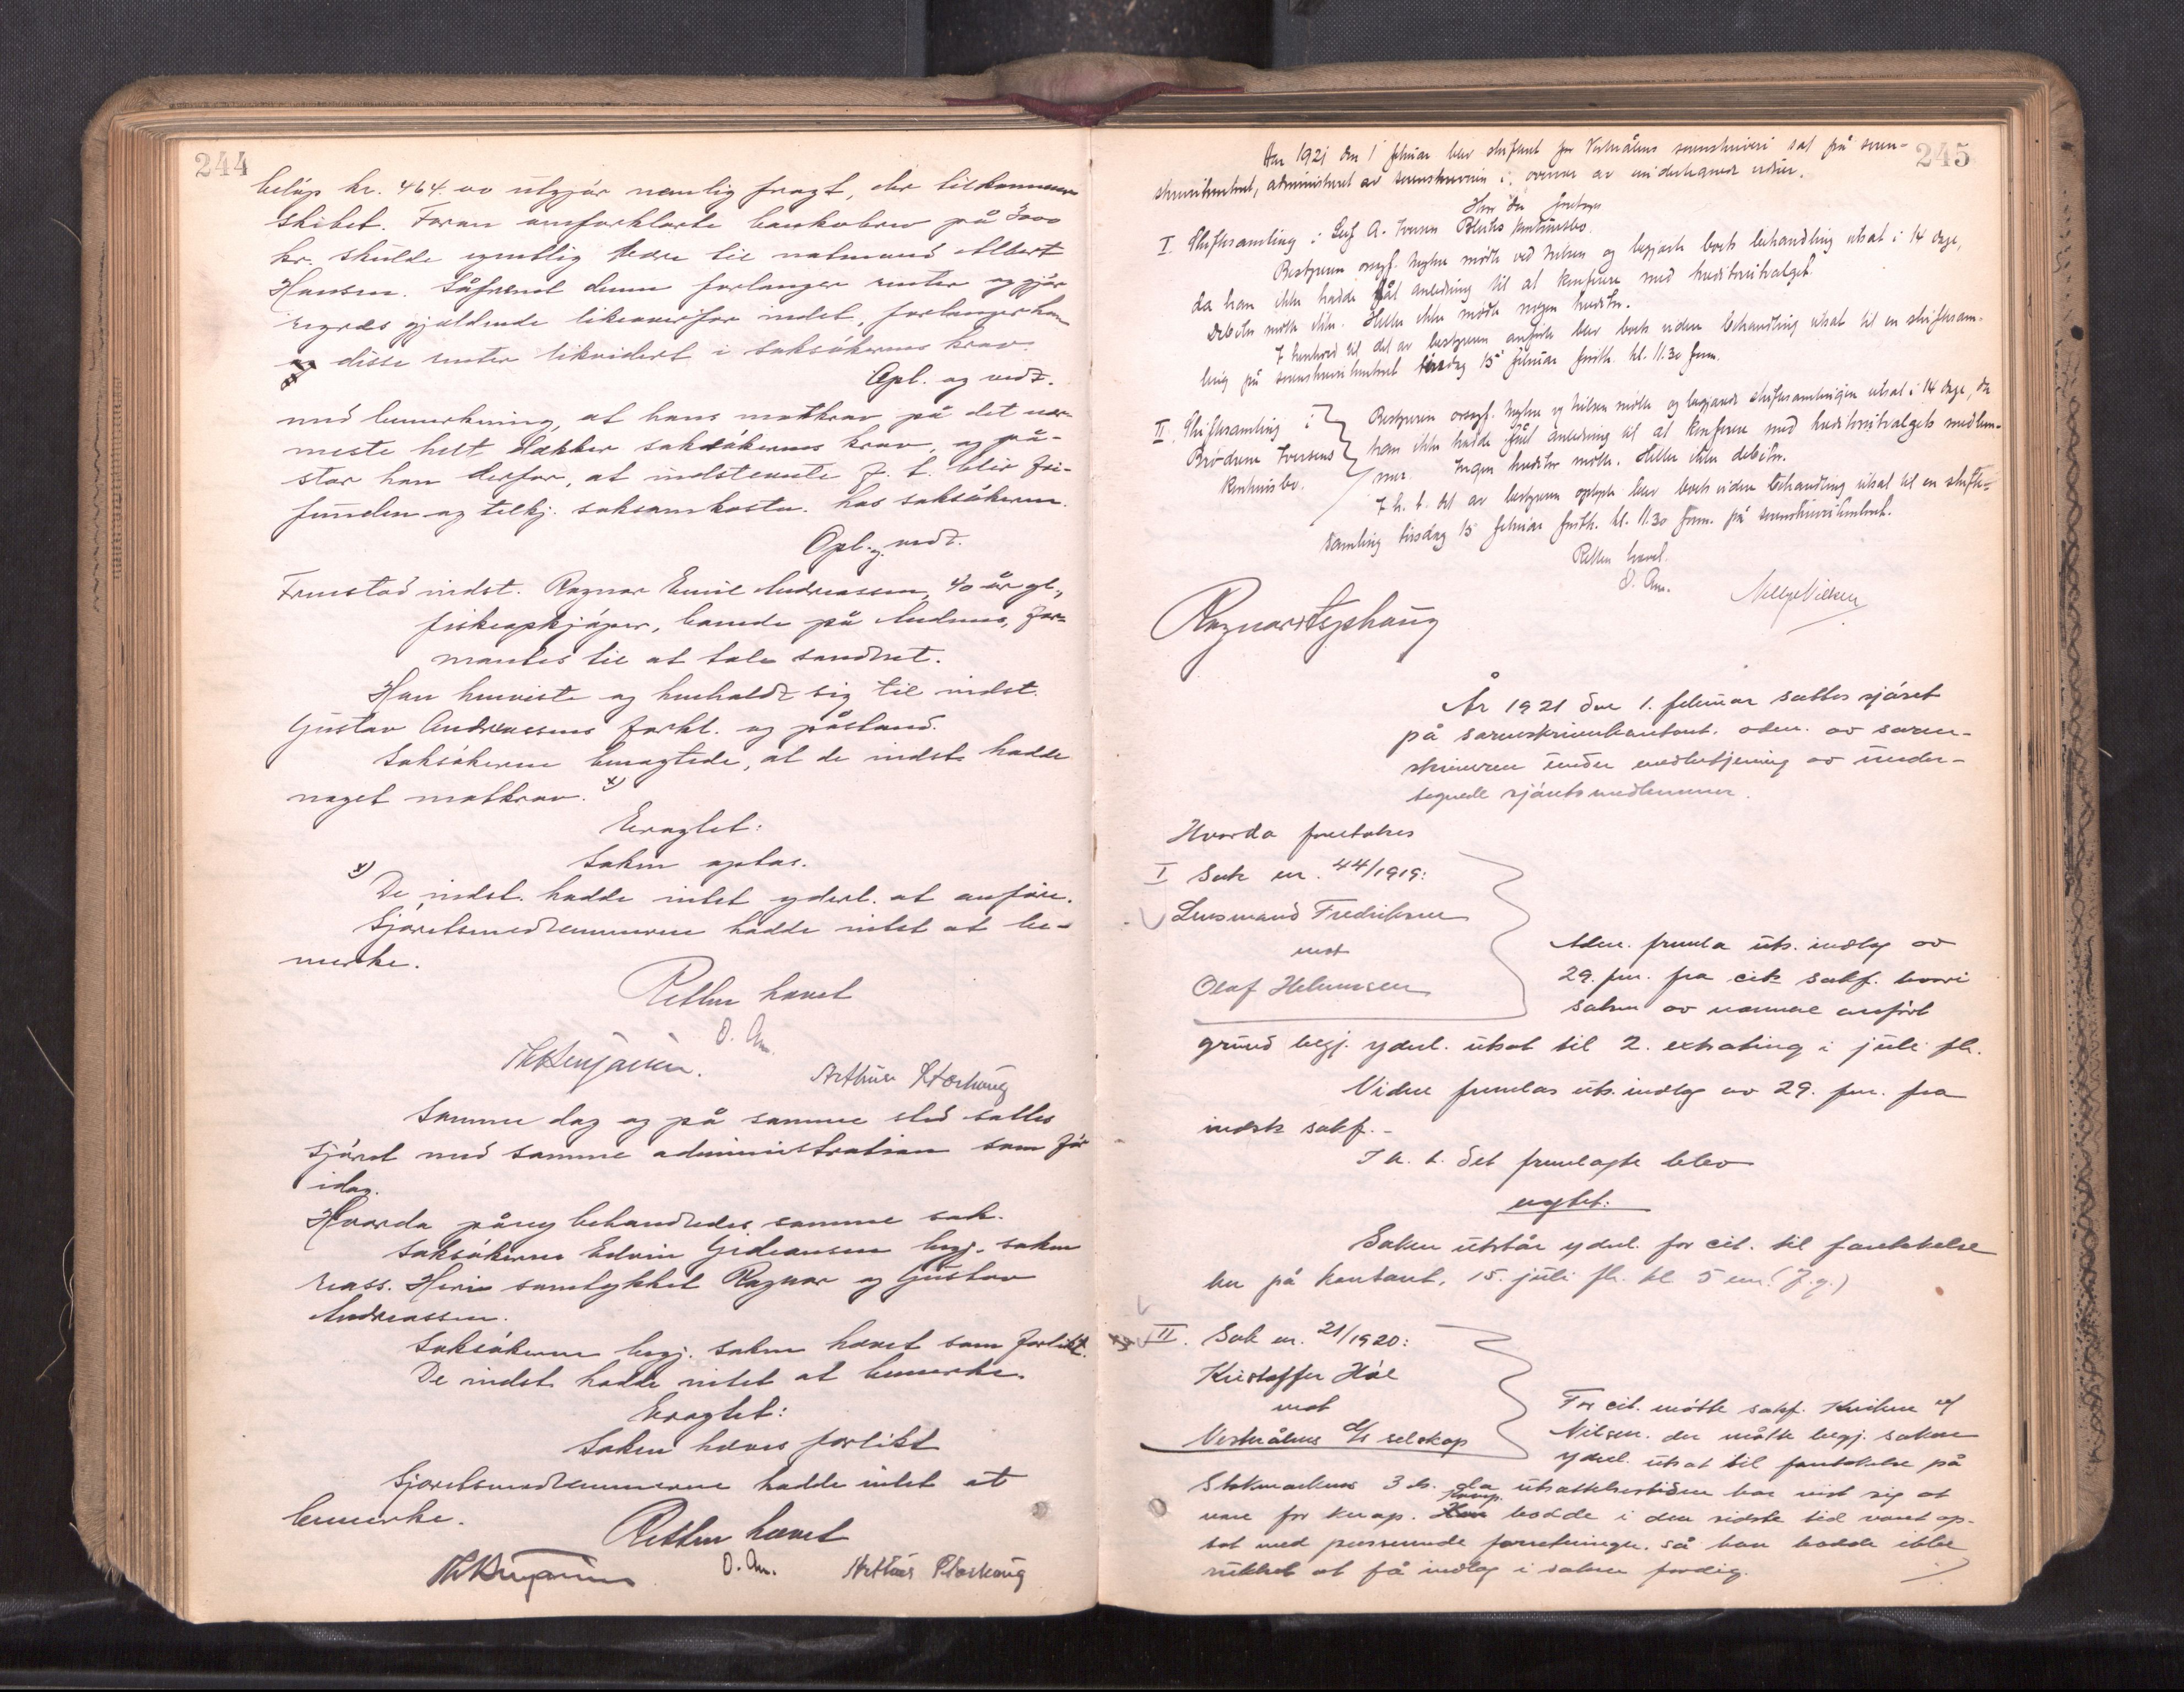 244
beløp kr. 464.00 utgjør nemlig fragt, der tilkommer
skibet. Foran omforklarte bankobrev på 3000
kr. skulde egentlig være til notmand Albert
Hansen. Såfremt denne forlanger renter og gjør
regres gjældende likeoverfor indst., forlanger han
og disse renter likvidert i saksøkernes krav.
Opl. og vedt.
med bemerkning, at hans motkrav på det nær-
meste helt dækker saksøkernes krav, og på-
står han derfor, at indstevnte f. t. blir fri-
funden og tilkj. saksomkostn. hos saksøkerne.
Opl. og vedt.
Fremstod indst. Ragnar Emil Andreassen, 40 år gl.,
fiskeopkjøper, boende på Andenes, for-
mantes til at tale sandhet.
Han henviste og henholdt sig til indst.
Gustav Andreassens forkl. og påstand.
Saksøkerne benegtede, at de indst. hadde
noget motkrav. x)
Eragtet:
Saken optas.
x) De indst. hadde intet yderl. at anføre.
Sjøretsmedlemmerne hadde intet at be-
merke.
Retten hævet
O. Am.
Arthur Storhaug
Samme dag og på samme sted sattes
sjøret med samme administration som før
idag.
Hvorda påny behandledes samme sak.
Saksøkerne Edvin Gideonsen begj. saken
reass. Heri samtykket Ragnar og Gustav
Andreassen.
Saksøkerne begj. saken hævet som forlikt.
De indst. hadde intet at bemerke.
Eragtet:
Saken hæves forlikt
Sjøretsmedlemmerne hadde intet at
bemerke.
Retten hævet
O. Am. Arthur Storhaug
245
Aar 1921 den 1 februar blev skifteret for Vesterålens sorenskriveri sat på soren-
skriverkontoret, administreret av sorenskriveren i overvær av undertegnede vidner.
Hvor da foretoges
I. Skiftesamling i Leif A. Iversen Bleiks konkursbo.
Bestyreren mødte ved Nielsen og begjærte boets behandling utsat i 14 dage,
da han ikke hadde fåt anledning til at konferere med kreditorutvalget.
Debitor mødte ikke. Heller ikke mødte nogen kreditor.
I henhold til det av bestyreren anførte blev boets videre behandling utsat til en skiftesam-
ling på sorenskriverkontoret tirsdag 15 februar førstk. kl. 11.30 form.
II. Skiftesamling i
Brødrene Iversens
konkursbo.
Bestyreren mødte og begjærede skiftesamlingen utsat i 14 dage, da
han ikke hadde fåt anledning til at konferere med kreditorutvalgets medlem-
mer. Ingen kreditor mødte. Heller ikke debitor.
I h. t. det av bestyreren oplyste blev boets videre behandling utsat til en skifte-
samling tirsdag 15 februar førstk. kl. 11.30 form. på sorenskriverkontoret.
Retten hævet.
O. Am. Nelly Nielsen
Ragnar
År 1921 den 1. februar sattes sjøret
på sorenskriverkontoret. adm. av soren-
skriveren under medbetjening av under-
tegnede sjøretsmedlemmer.
Hvorda foretokes
I Sak nr. 44/1919:
Lensmand Fredriksen
mot
Olaf Helmersen
Adm. fremla uts. indlæg av
29. jan. fra cits sakf. hvori
saken av nærmere anført
grund begj. yderl. utsat til 2. ekstrating i juli fk.
Videre fremlas uts. indlæg av 29. jan. fra
indsts sakf. -
I h. t. det fremlagte blev
eragtet:
Saken utstår yderl. for cit. til foretakelse
her på kontoret, 15. juli fk. kl. 5 em. (F. g.)
II. Sak nr. 21/1920:
Kristoffer Hól
mot
Vesterålens D/S selskap
For cit. mødte sakf. ved
Nilsen. der måtte begj. saken
yderl. utsat til foretakelse på
Stokmarknes 3 ds. da utsættelsestiden har vist sig at
være for knap. Komp. hadde i den sidste tid været op-
tat med presserende forretninger. så han hadde ikke
rukket at få indlæg i saken færdig.